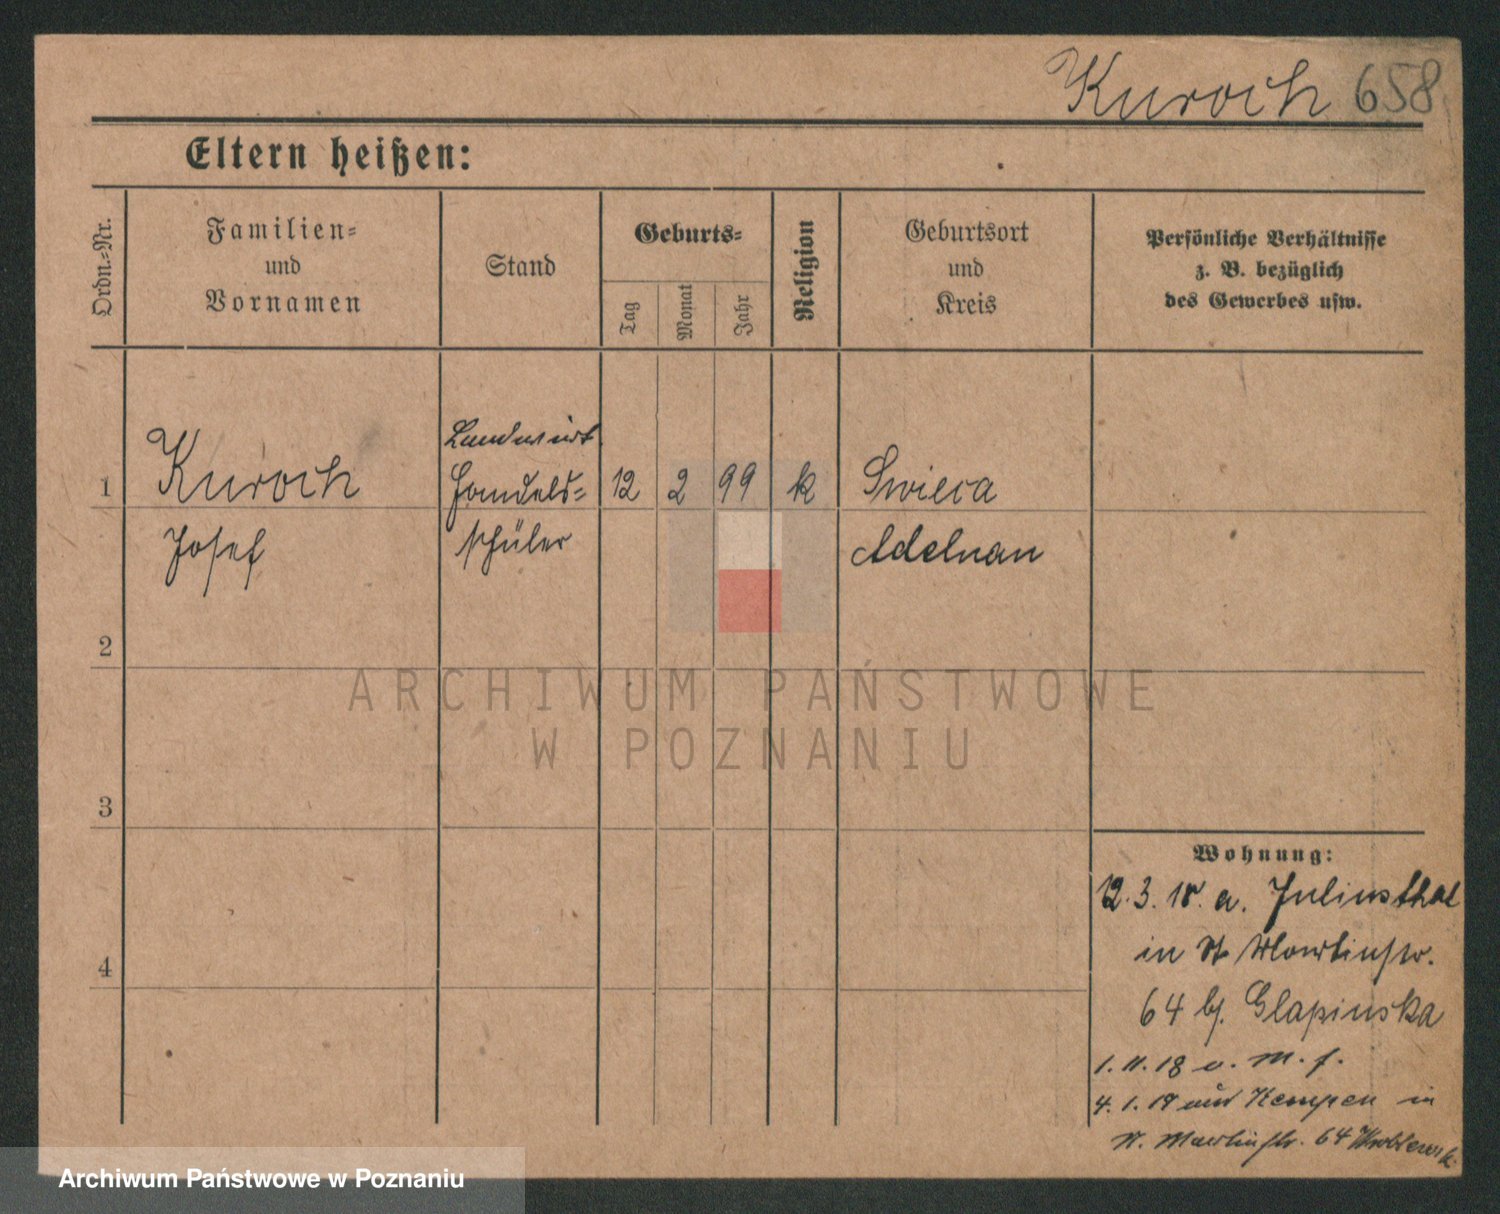 Kuroch 658
Eltern heißen:
Ordn.-Nr.
Familien-
und
Vornamen
Stand
Geburts-
Tag
Monat
Jahr
Religion
Geburtsort
und
Kreis
Persönliche Verhältnisse
z. B. bezüglich
des Gewerbes usw.
Landwirt
1 Kuroch Handels- 12 2 99 k Swieca
Josef schüler Adelnau
2
3
4
Wohnung:
12.3.18. a. Juliusthal
in St. Martinstr.
64 bj. Glapinska
1.11.18 a. M. f.
4.1.19 aus Kempen in
St. Martinstr. 64
ARCHIWUM PAŃSTWOWE
W POZNANIU
Archiwum Państwowe w Poznaniu